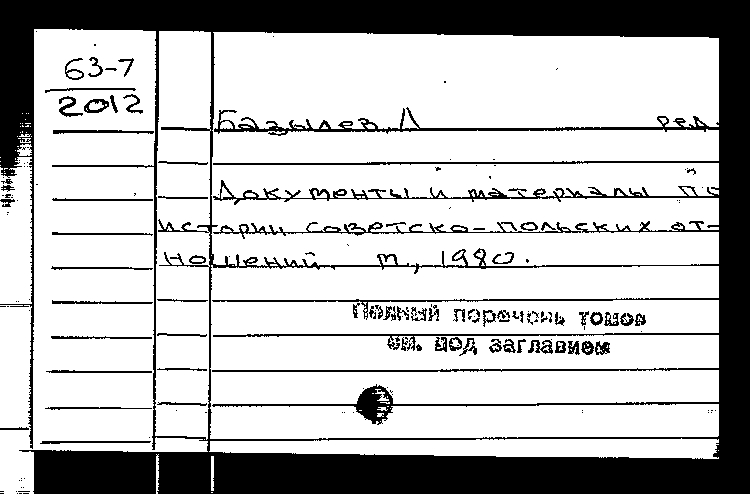 63-7
2012
Базылев, Л ред.
Документы и материалы по
истории советско-польских от-
ношений. т., 1980.
Полный перечень томов
см. под заглавием